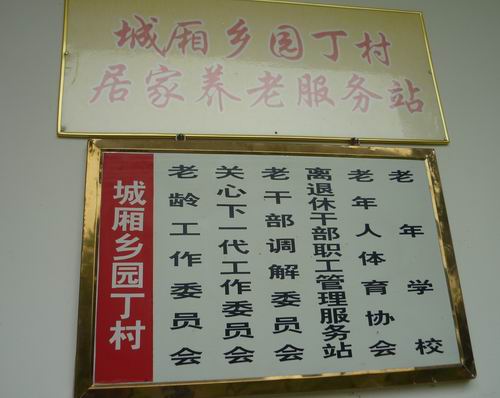 城厢乡园丁村
居家养老服务站
城厢乡园丁村
老龄工作委员会
关心下一代工作委员会
老干部调解委员会
离退休干部职工管理服务站
老年人体育协会
老年学校